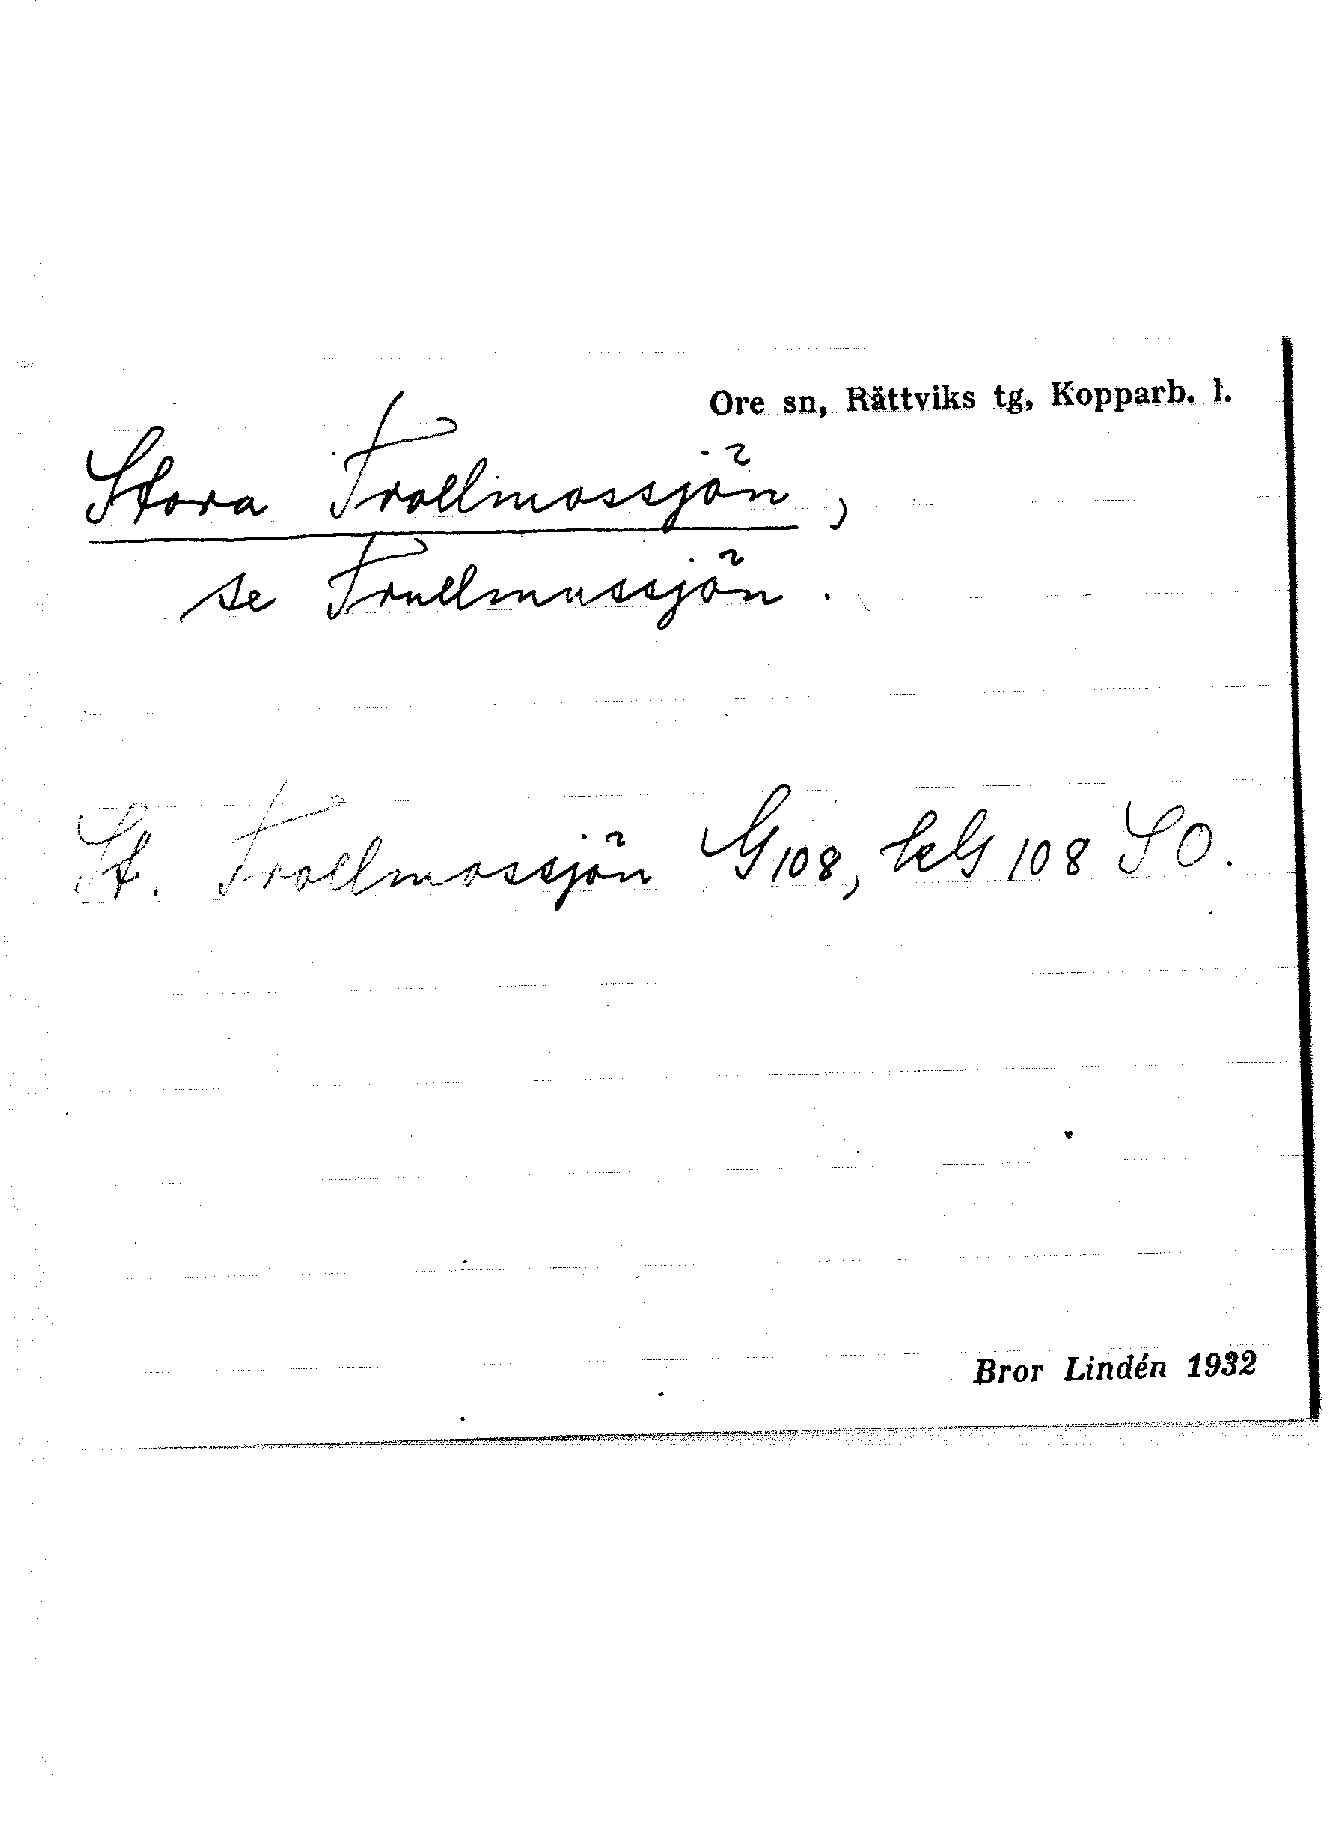 Ore sn, Rättviks tg, Kopparb. l.
Stora Trollmossjön,
se Trullmussjön.
St. Trollmossjön G108, kG 108 SO.
Bror Lindén 1932